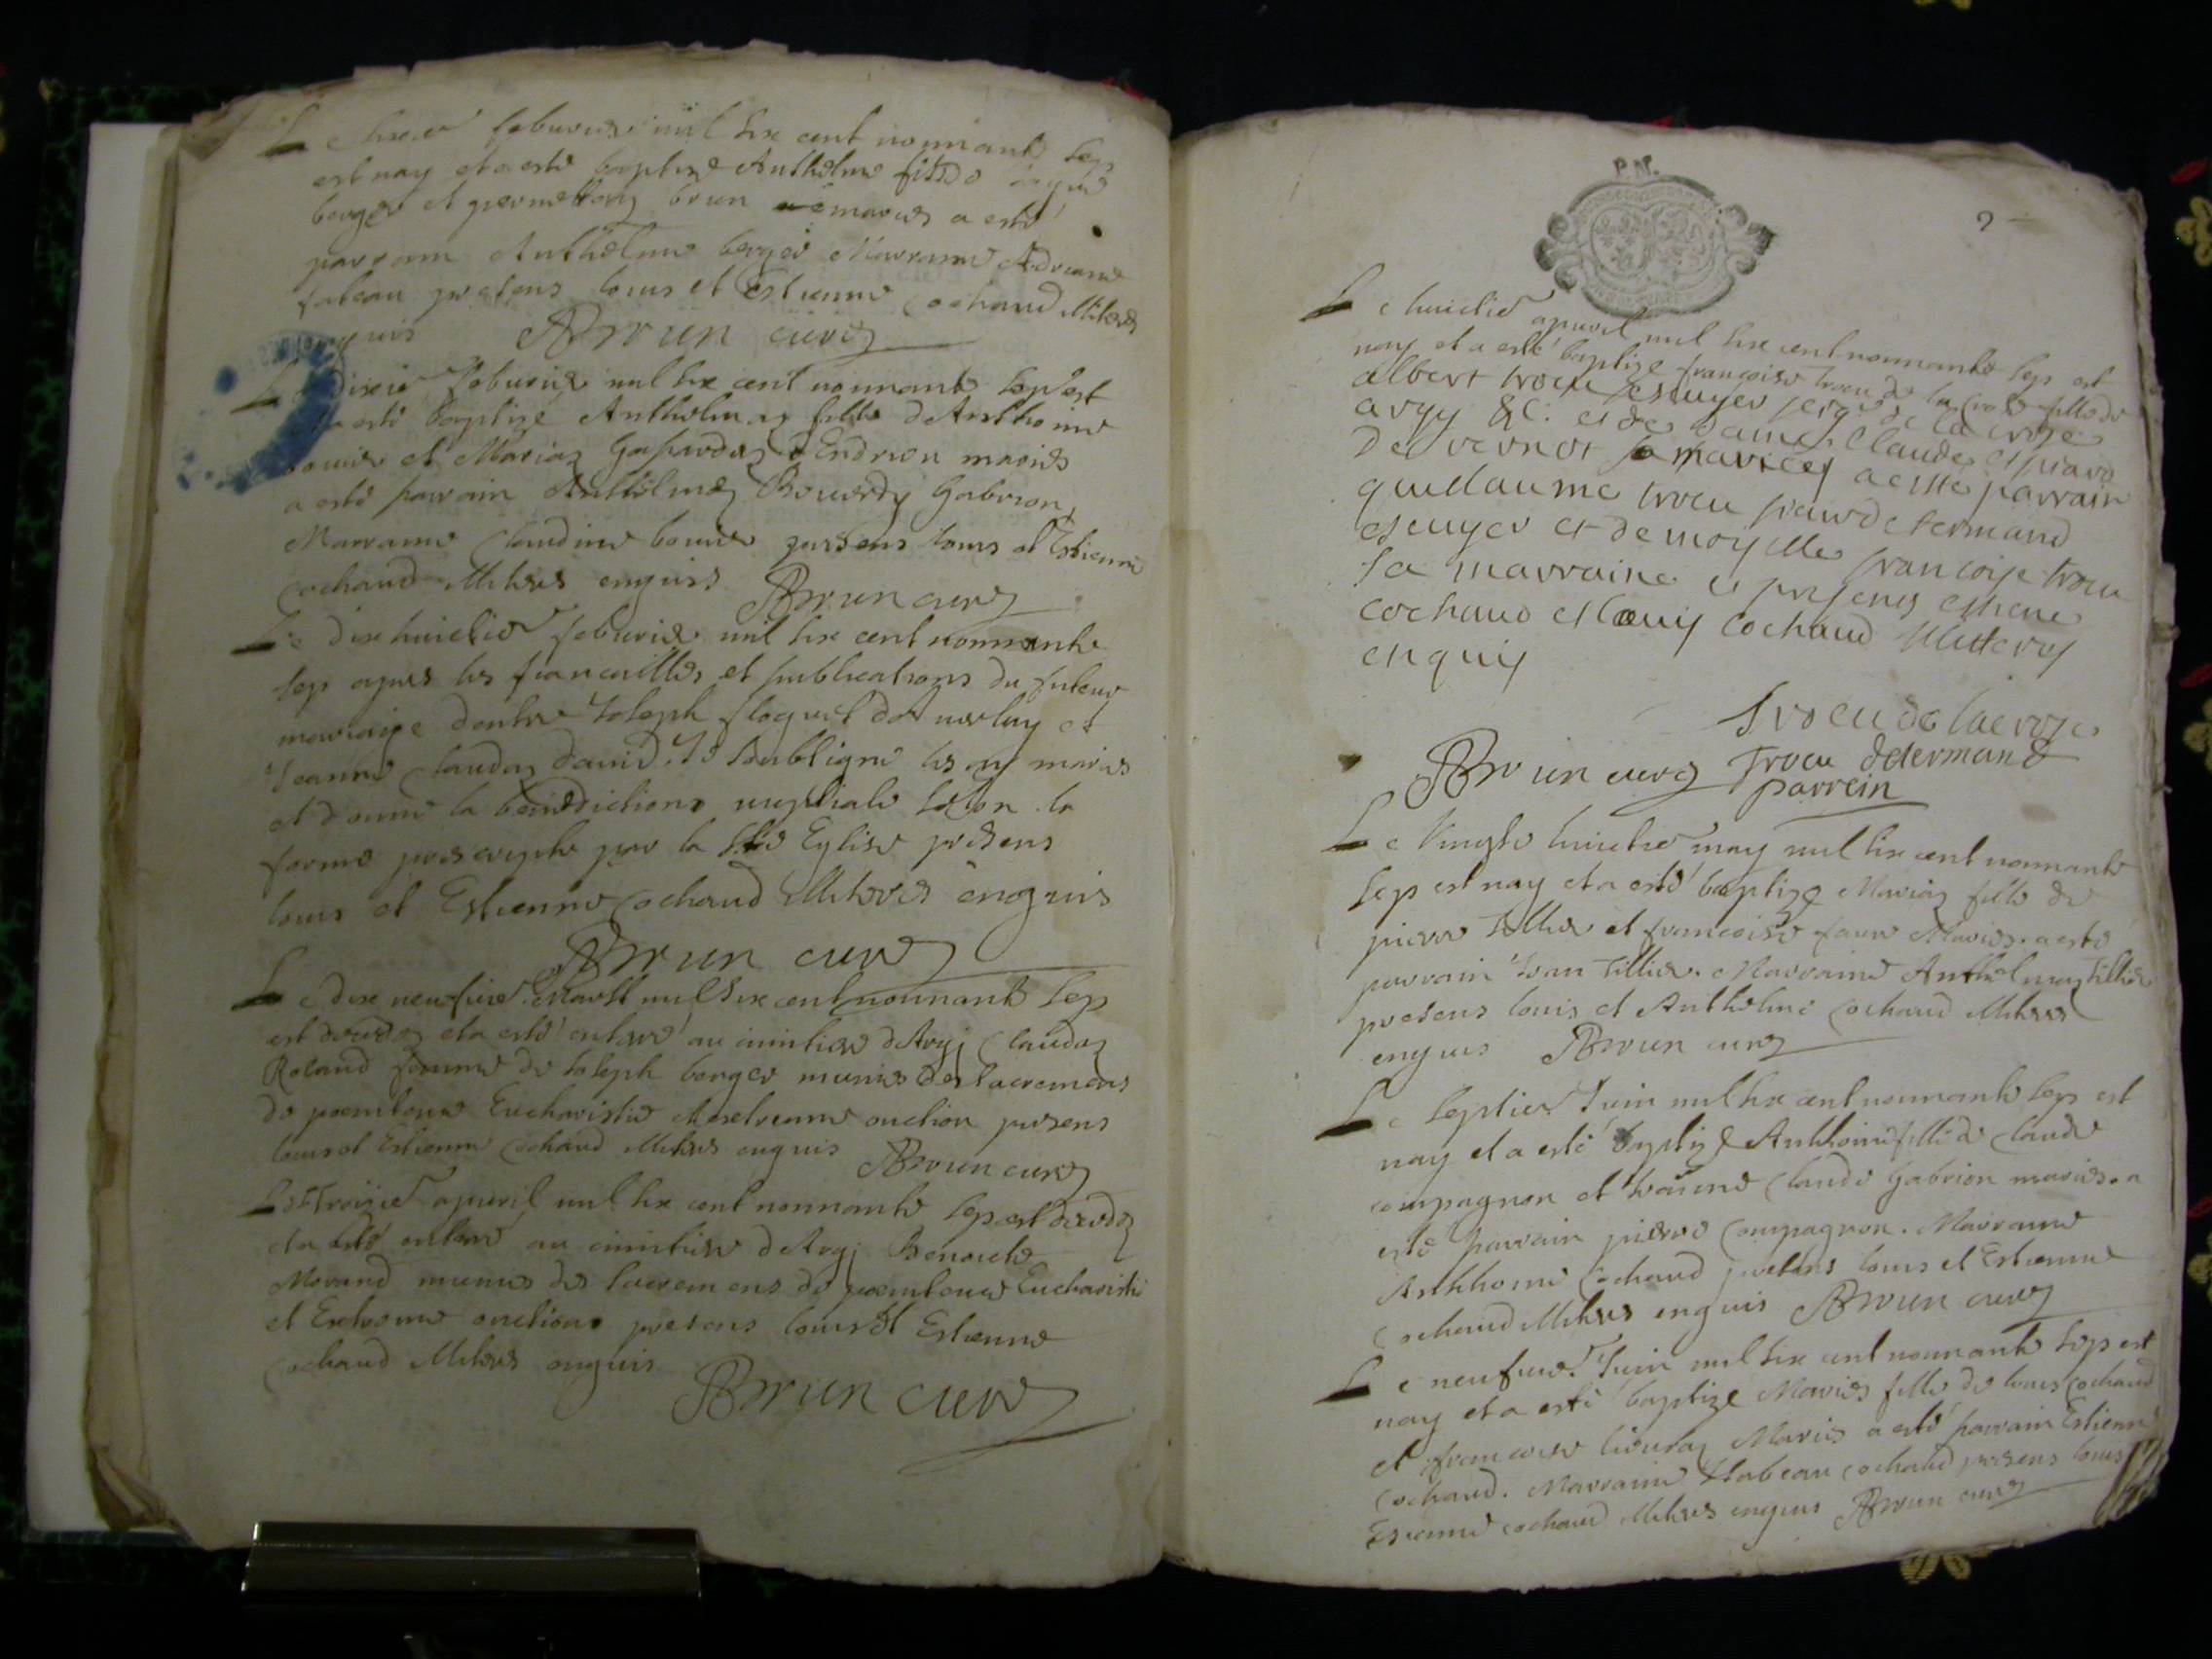 Le feburier mil six cent nonnante sep
est nay et a esté baptizé Anthelme fils de
berger et pernettaz brun mariés a esté
parrain Anthelme berger Marraine Adriane
fabeau presens louis et Estienne Cochaud illiterés
enquis ABrun curé
Le dixie feburier mil six cent nonnante sep est
a esté baptizé Anthelmaz fille d Anthoine
bouvier et Mariaz Gaspardaz d Endrion mariés
a esté parrain Anthelme Gabrion
Marraine Claudine bouvier presens louis et Estienne
Cochaud illiterés enquis ABrun curé
Le dix huictie feburier mil six cent nonnante
sep apres les fiancailles et publications du futeur
mariaige dentre Joseph floquet de et
Jeanne Claudaz david. Je Soubsigné les ay mariés
et donné la benediction nuptiale selon la
forme prescripte par la Ste Eglise présens
louis et Estienne Cochaud illiterés enquis
ABrun curé
Le dix neufvie Marst mil six cent nonnante sep
est decedez et a esté enterré au cimitiere d Argj Claudaz
Roland femme de Joseph berger munie des sacremens
de penitence Eucharistie et extreme onction présens
louis et Estienne Cochaud illiterés enquis ABrun curé
Le Troizie apvril mil six cent nonnante sep est decedez
et a esté enterré au cimitiere d Argj Benoiste
Morand munie des sacremens de penitence Eucharistie
et Extreme onction presens louis et Estienne
Cochaud illiterés enquis
ABrun curé
P.N.
2
Le huictie apvril mil six cent nonnante sep est
nay et a esté baptizé francoise trocu de la Croze fille de
albert trocu escuyer de la croze
argy &c. et de dame Claude
De vernot sa mariéez a esté parrain
guillaume trocu sieur de termand
escuyer et demoyselle francoise trocu
sa marraine presens estiene
cochaud et Louis cochaud illiteres
enquis
Trocu de la croze
ABrun curé Trocu determand
parrein
Le Vingte huictie may mil six cent nonnante
sep est nay et a esté baptizé Mariaz fille de
pierre Tillier et francoise faure Mariés. a esté
parrain Jean Tillier. Marraine Anthelmaz Tillier
presens louis et Anthelme Cochaud illiterés
enquis ABrun curé
Le septie Juin mil six cent nonnante sep est
nay et a esté baptizé Anthoine fille de Claude
compagnon et Jeanne Claude Gabrion mariés. a
esté parrain pierre Compagnon. Marraine
Anthoine Cochaud presens louis et Estienne
Cochaud illiterés enquis ABrun curé
Le neufvie Juin mil six cent nonnante sep est
nay et a esté baptizé Mariés fille de louis Cochaud
et francoise Mariés a esté parrain Estienne
Cochaud. Marraine Ysabeau Cochaud présens louis
Estienne Cochaud illiterés enquis ABrun curé